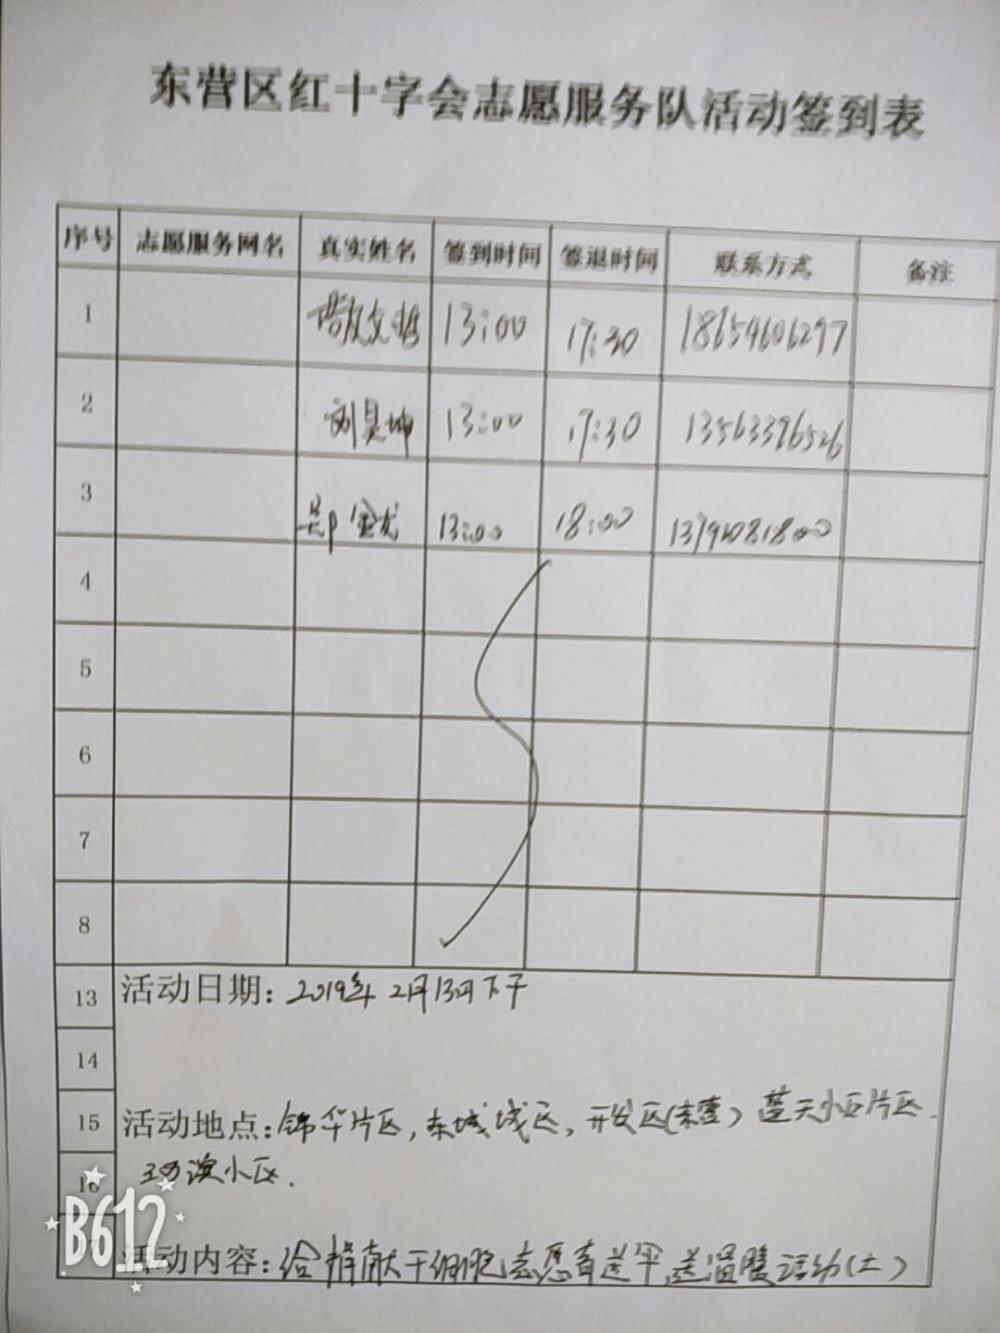 东营区红十字会志愿服务队活动签到表
序号 志愿服务网名 真实姓名 签到时间 签退时间 联系方式 备注
1 13:00 17:30 18654606297
2 刘昊坤 13:00 17:30 13563396526
3 13:00 18:00
4
5
6
7
8
13 活动日期: 2019年2月13日下午
14
15 活动地点: 锦华片区,东城城区,开发区(东营)蓝天小区片区.
16 小区.
活动内容: 给捐献干细胞志愿者送伞送温暖活动(土)
B612